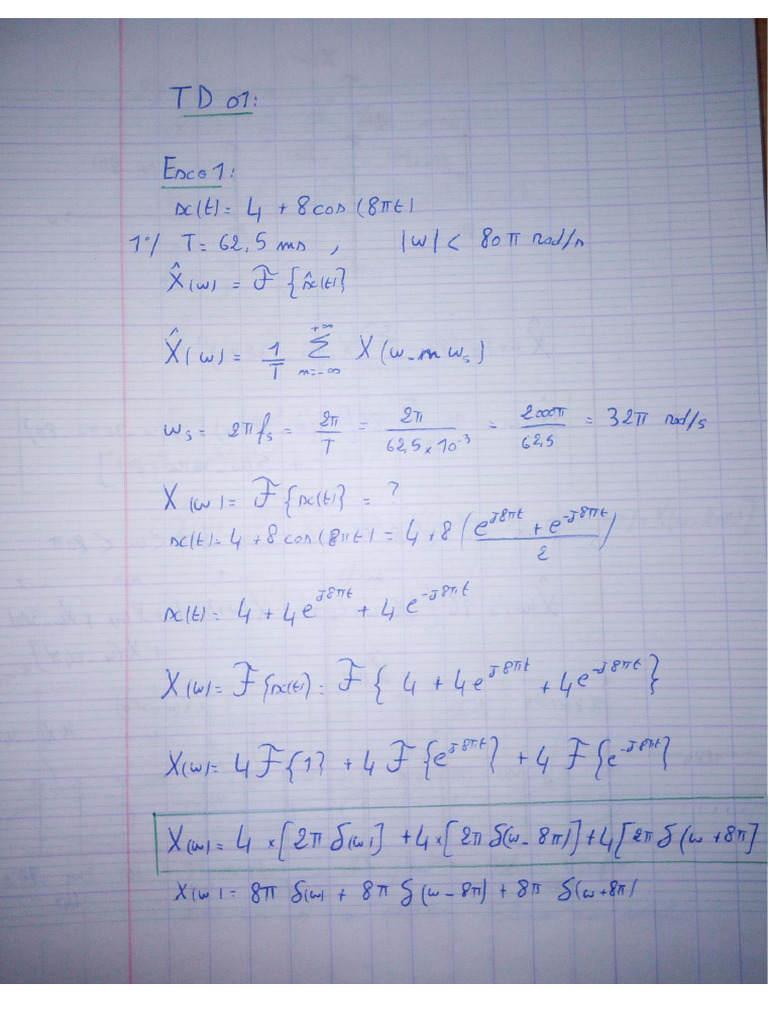 TD 01:
Exo 1:
x(t) = 4 + 8 cos (8πt)
1°/ T = 62,5 ms , |w| < 80π rad/s
X̂(w) = F {x̂(t)}
X̂(w) = 1/T Σ_{n=-∞}^{+∞} X(w - n w_s)
w_s = 2πf_s = 2π/T = 2π/(62,5 × 10^-3) = 2000π/62,5 = 32π rad/s
X(w) = F{x(t)} = ?
x(t) = 4 + 8 cos (8πt) = 4 + 8 ((e^{J8πt} + e^{-J8πt})/2)
x(t) = 4 + 4e^{J8πt} + 4e^{-J8πt}
X(w) = F{x(t)} = F{ 4 + 4e^{J8πt} + 4e^{-J8πt} }
X(w) = 4 F{1} + 4 F{e^{J8πt}} + 4 F{e^{-J8πt}}
X(w) = 4 × [2π δ(w)] + 4 × [2π δ(w - 8π)] + 4 [2π δ(w + 8π]
X(w) = 8π δ(w) + 8π δ(w - 8π) + 8π δ(w + 8π)